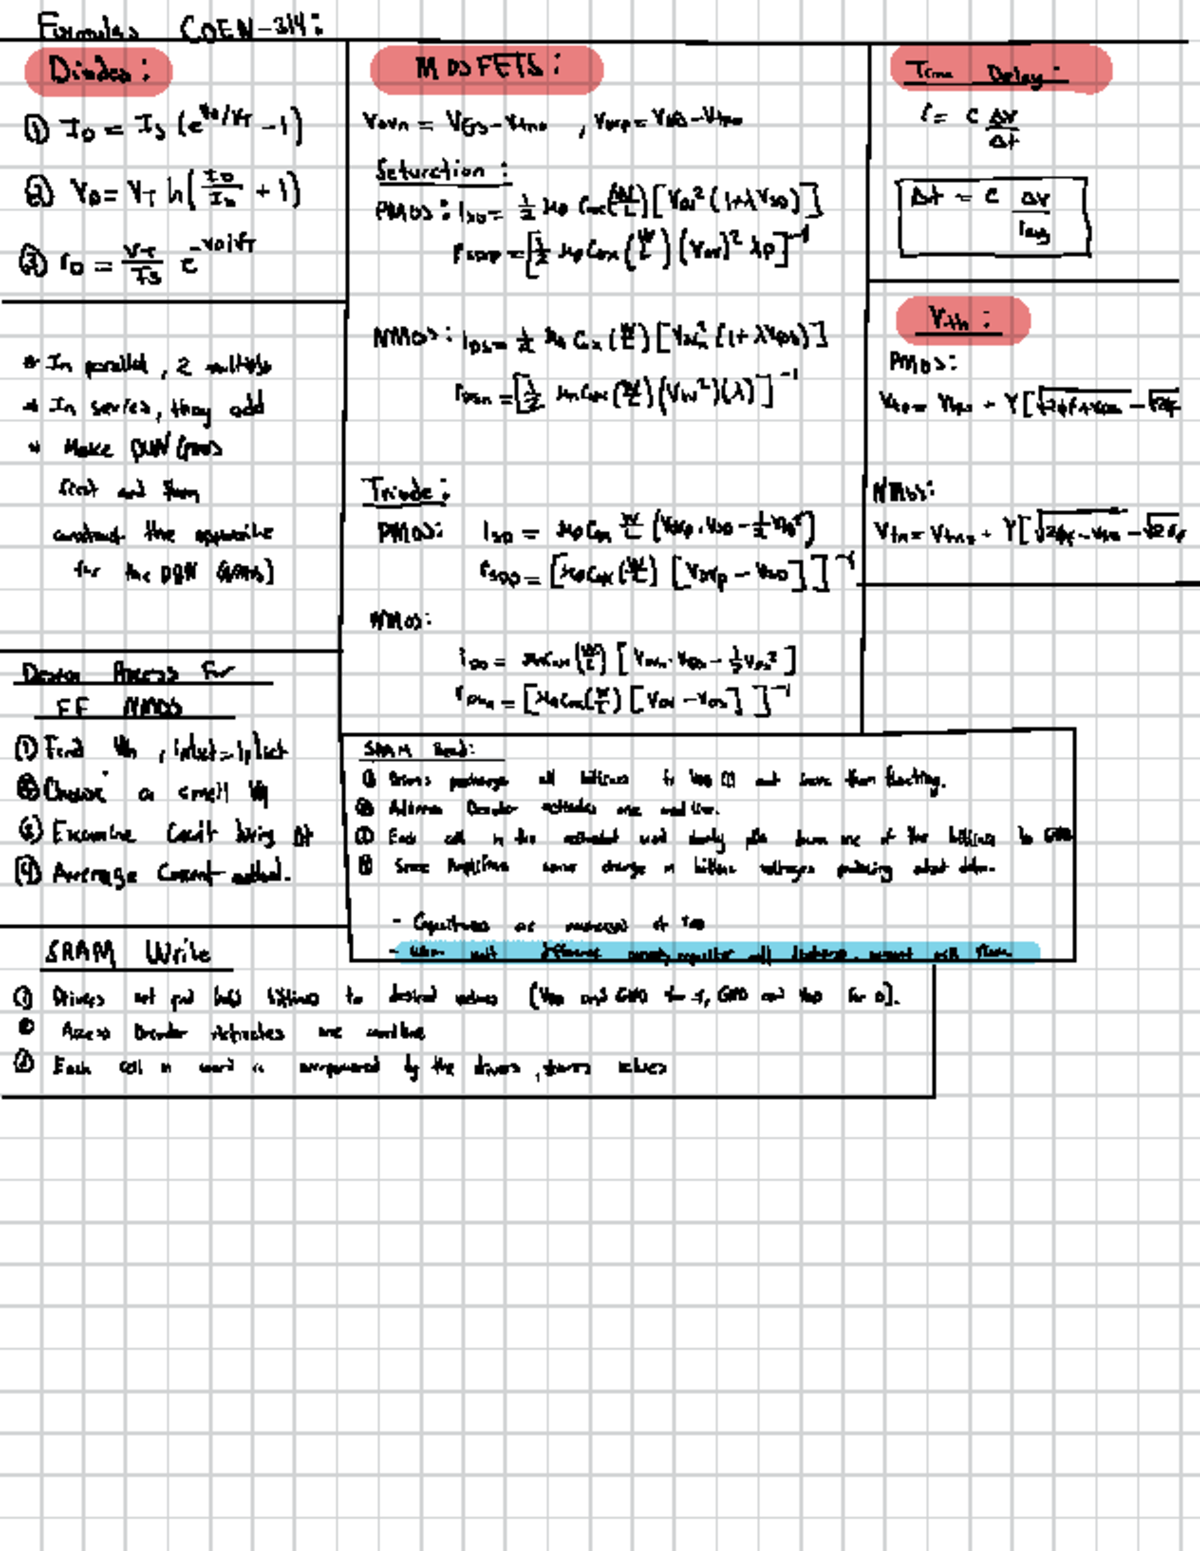 Formulas COEN-314:
Diodes:
① I_D = I_S (e^{V_D/V_T} - 1)
② V_D = V_T ln(I_D/I_S + 1)
③ r_D = V_T/I_S e^{-V_D/V_T}
* In parallel, 2 multiple
* In series, they add
* Make PUN (pmos
first and then
construct the opposite
for the PDN (nmos)
Design Process for
FF NMOS
① Find
② Choose a small
③ Examine Circuit during Δt
④ Average Current method.
MOSFETS:
V_ovn = V_GS - V_tno , V_ovp =
Saturation:
PMOS: i_SD = 1/2 μp Cox (W/L) [V_ov² (1+λV_SD)]
r_SDp = [1/2 μp Cox (W/L) (V_ov)² λp]^{-1}
NMOS: i_DS = 1/2 μn Cox (W/L) [V_ov² (1+λV_DS)]
r_DSn = [1/2 μn Cox (W/L) (V_ov²)(λ)]^{-1}
Triode:
PMOS: i_SD = μp Cox W/L [V_ovp · V_SD - 1/2 V_SD²]
r_SDp = [μp Cox (W/L) [V_ovp - V_SD]]^{-1}
NMOS:
= μn Cox (W/L) [V_ovn · V_DS - 1/2 V_DS²]
= [μn Cox (W/L) [V_ov - V_DS]]^{-1}
Time Delay:
i = C ΔV/Δt
Δt = C ΔV/i_avg
V_th:
PMOS:
NMOS:
SRAM Read:
① Drivers precharge all bitlines to VDD (1) and leave them floating.
② Address Decoder activates one wordline.
③ Each cell in the activated word slowly pulls down one of the bitlines to GND
④ Sense Amplifiers sense change in bitline voltages producing output data.
- Capacitances are precharged at VDD
- When
SRAM Write
① Drivers set and hold bitlines to desired values (VDD and GND for 1, GND and VDD for 0).
② Access Decoder Activates one wordline
③ Each cell in word is overpowered by the drivers, stores values